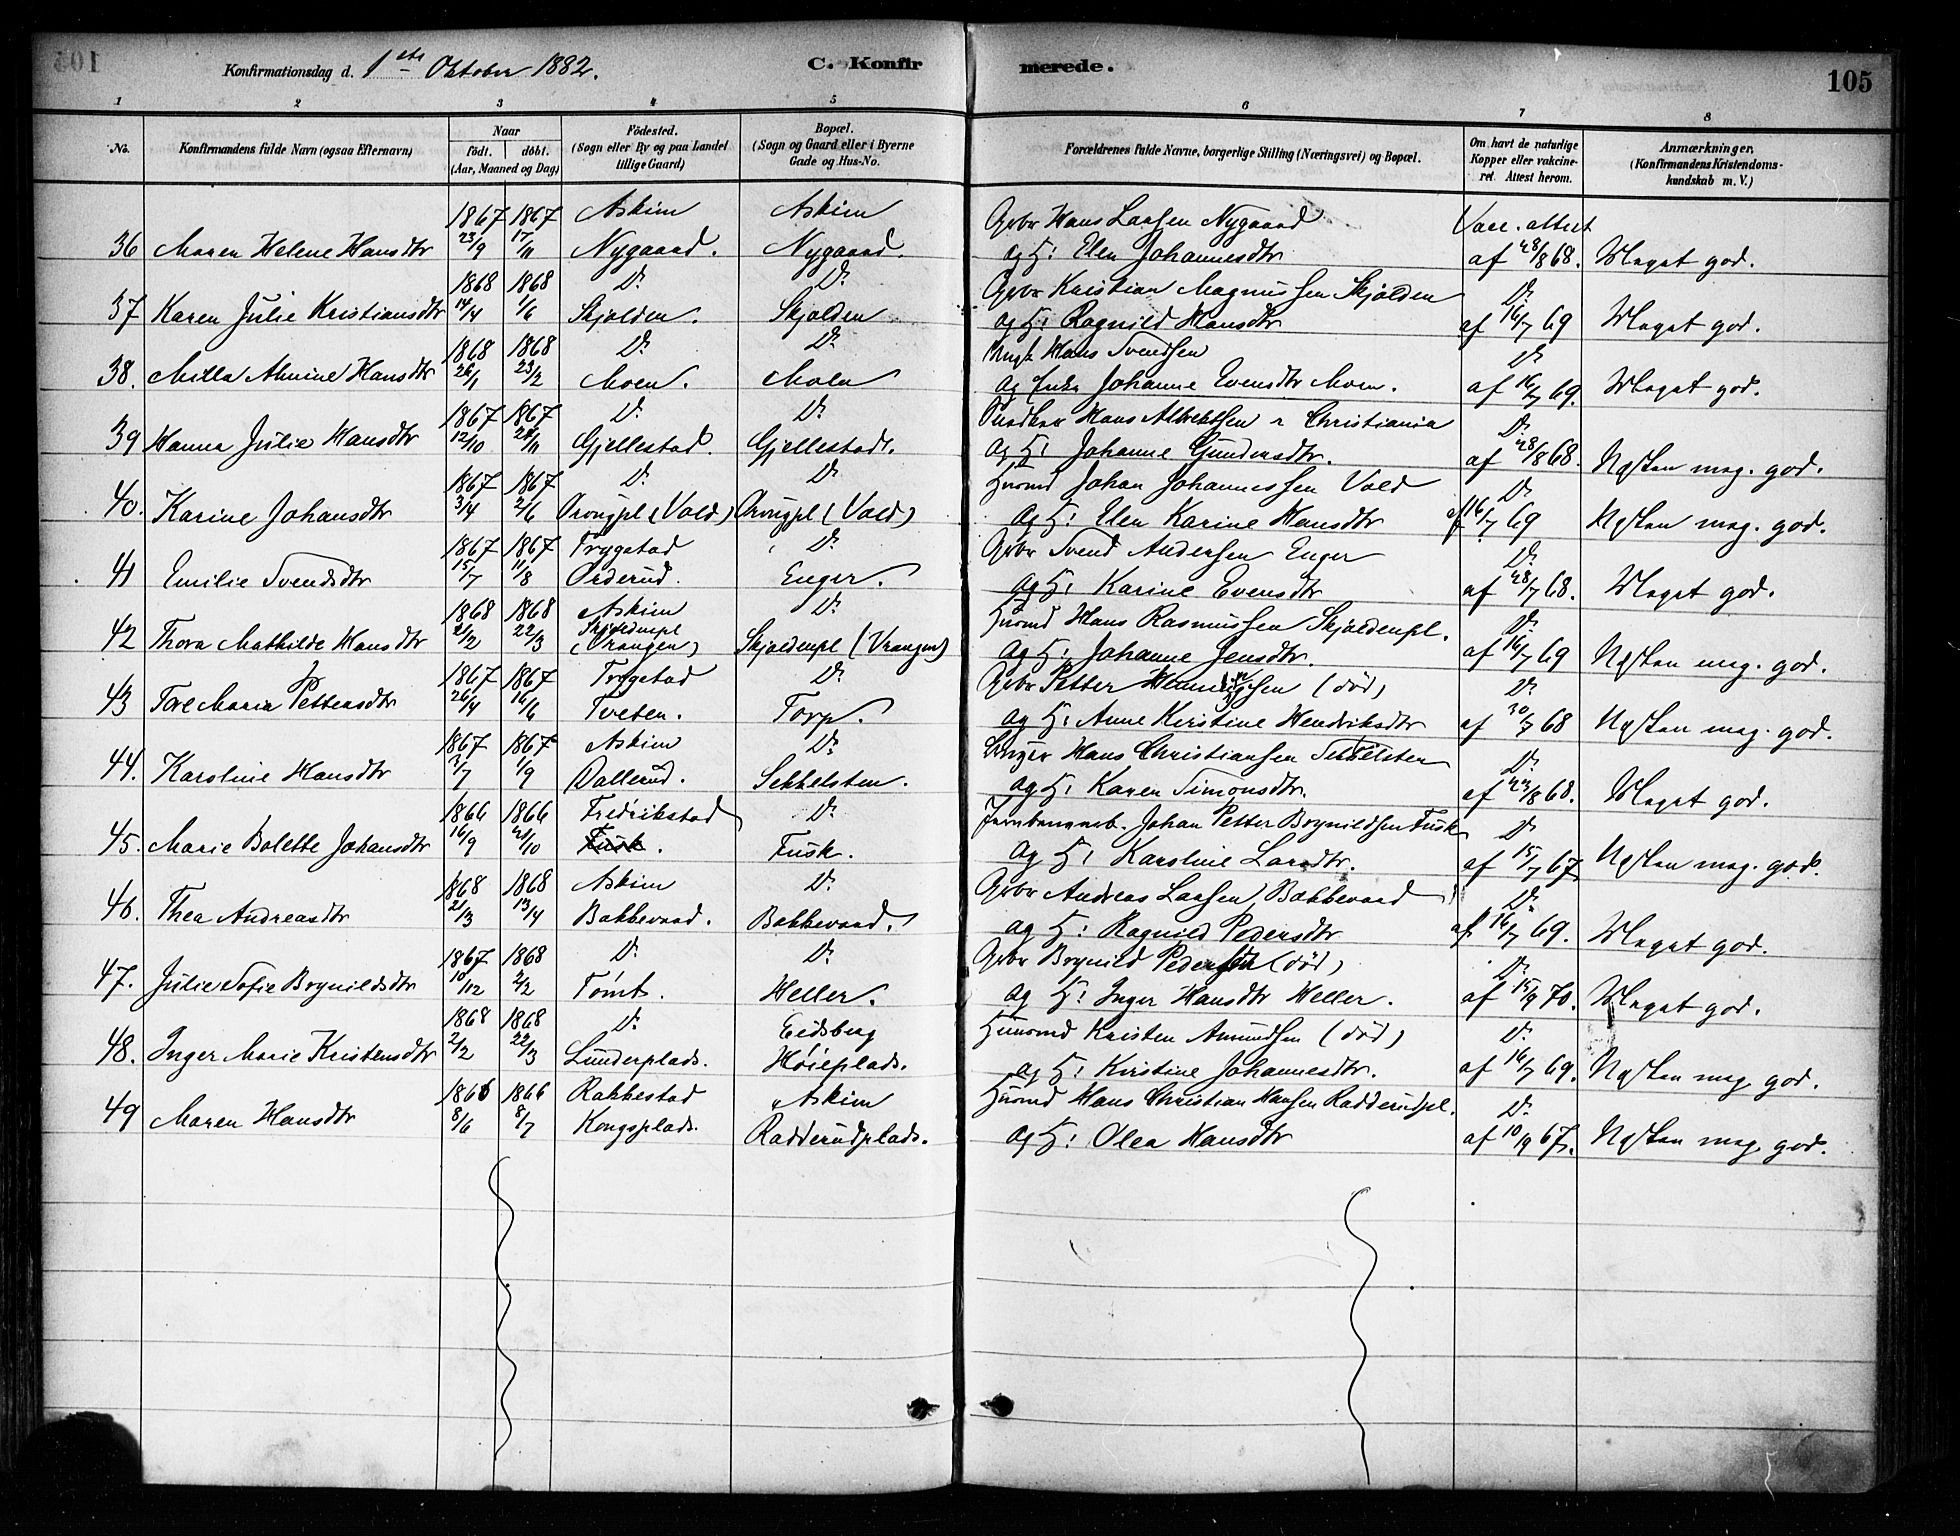 Konfirmationsdag d. 1ste Oktober 1882.
C. Konfirmerede.
105
1 2 3 4 5 6 7 8
No.
Konfirmandens fulde Navn (ogsaa Efternavn)
Naar
födt. döbt.
(Aar, Maaned og Dag)
Födested.
(Sogn eller By og paa Landet
tillige Gaard)
Bopæl.
(Sogn og Gaard eller i Byerne
Gade og Hus-No.
Forældrenes fulde Navne, borgerlige Stilling (Næringsvei) og Bopæl.
Om havt de naturlige
Kopper eller vakcine-
ret. Attest herom.
Anmærkninger,
(Konfirmandens Kristendoms-
kundskab m. V.)
1867 1867 Askim Askim Gbr Hans Larsen Nygaard Vacc. attest
36 Maren Helene Hansdtr 23/9 17/11 Nygaard. Nygaard. og H: Elen Johannesdtr af 28/8 68. Meget god.
1868 1868 Do Do Gbr Kristian Magnussen Skjolden Do
37 Karen Julie Kristiansdtr 14/4 1/6 Skjolden. Skjolden og H: Ragnild Hansdtr af 16/7 69 Meget god.
1868 1868 Do Do Ungk Hans Svendsen Do
38. Milla Almine Hansdtr 26/1 23/2 Moen. Moen og Enke Johanne Evensdtr Moen. af 16/7 69. Meget god.
1867 1867 Do Do Hans Albrektsen Christiania Do
39 Hanna Julie Hansdtr 12/10 24/11 Gjellestad. Gjellestad. og H: Johanne Gundersdtr. af 28/8 68. Næsten meg. god.
1867 1867 Do Do Husmd Johan Johannessen Vold Do
40. Karine Johansdtr 3/4 2/6 Prongpl (Vold) Prongpl (Vold) og H: Elen Karine Hansdtr af 16/7 69 Næsten meg. god.
1867 1867 Trygstad Do Gbr Svend Andersen Enger Do
41 Emilie Svendsdtr 15/7 11/8 Orderud. Enger. og H: Karine Evensdtr af 28/7 68. Meget god.
1868 1868 Askim Do Husmd Hans Rasmussen Skjoldenpl. Do
42 Thora Mathilde Hansdtr 21/2 22/3 Skjoldenpl (Vrangen) Skjoldenpl (Vrangen) og H: Johanne Jensdtr. af 16/7 69 Næsten meg. god.
1867 1867 Trygstad Do Gbr Petter Henningsen (död) Do
43 Tore Maria Pettersdtr 26/4 16/6 Tveten. Torp. og H: Anne Kirstine Hendriksdtr af 30/7 68 Næsten meg. god.
1867 1867 Askim Do Hans Christiansen Sekkelsten Do
44. Karoline Hansdtr 3/7 1/9 Dallerud. Sekkelsten. og H: Karen Simonsdtr. af 27/8 68. Meget god.
1866 1866 Fredrikstad Do Jernbanearb. Johan Petter Brynildsen Fusk Do
45. Marie Bolette Johansdtr 16/9 21/10 Fusk. Fusk. og H: Karoline Larsdtr. af 15/7 67. Næsten meg. god.
1868 1868 Askim Do Gbr Andreas Larsen Bakkevaad Do
46. Thea Andreasdtr 21/3 13/4 Bakkevaad. Bakkevaad. og H: Ragnild Pedersdtr af 16/7 69. Meget god.
1867 1868 Do Do Gbr Brynild Pedersen (död) Do
47. Julie Sofie Brynildsdtr 10/12 2/2 Tomt. Heller. og H: Inger Hansdtr Heller. af 15/9 70. Meget god.
1868 1868 Do Eidsberg Husmd Kristen Amundsen (död) Do
48. Inger Marie Kristensdtr 2/2 22/3 Lunderplads. Høieplads. og H: Kirstine Johannesdtr. af 16/7 69. Næsten meg god.
1866 1866 Rakkestad Askim Husmd Hans Christian Hansen Radderudpl. Do
49 Maren Hansdtr 8/6 8/7 Kongsplads. Radderudplads. og H: Olea Hansdtr af 10/9 67. Næsten meg god.